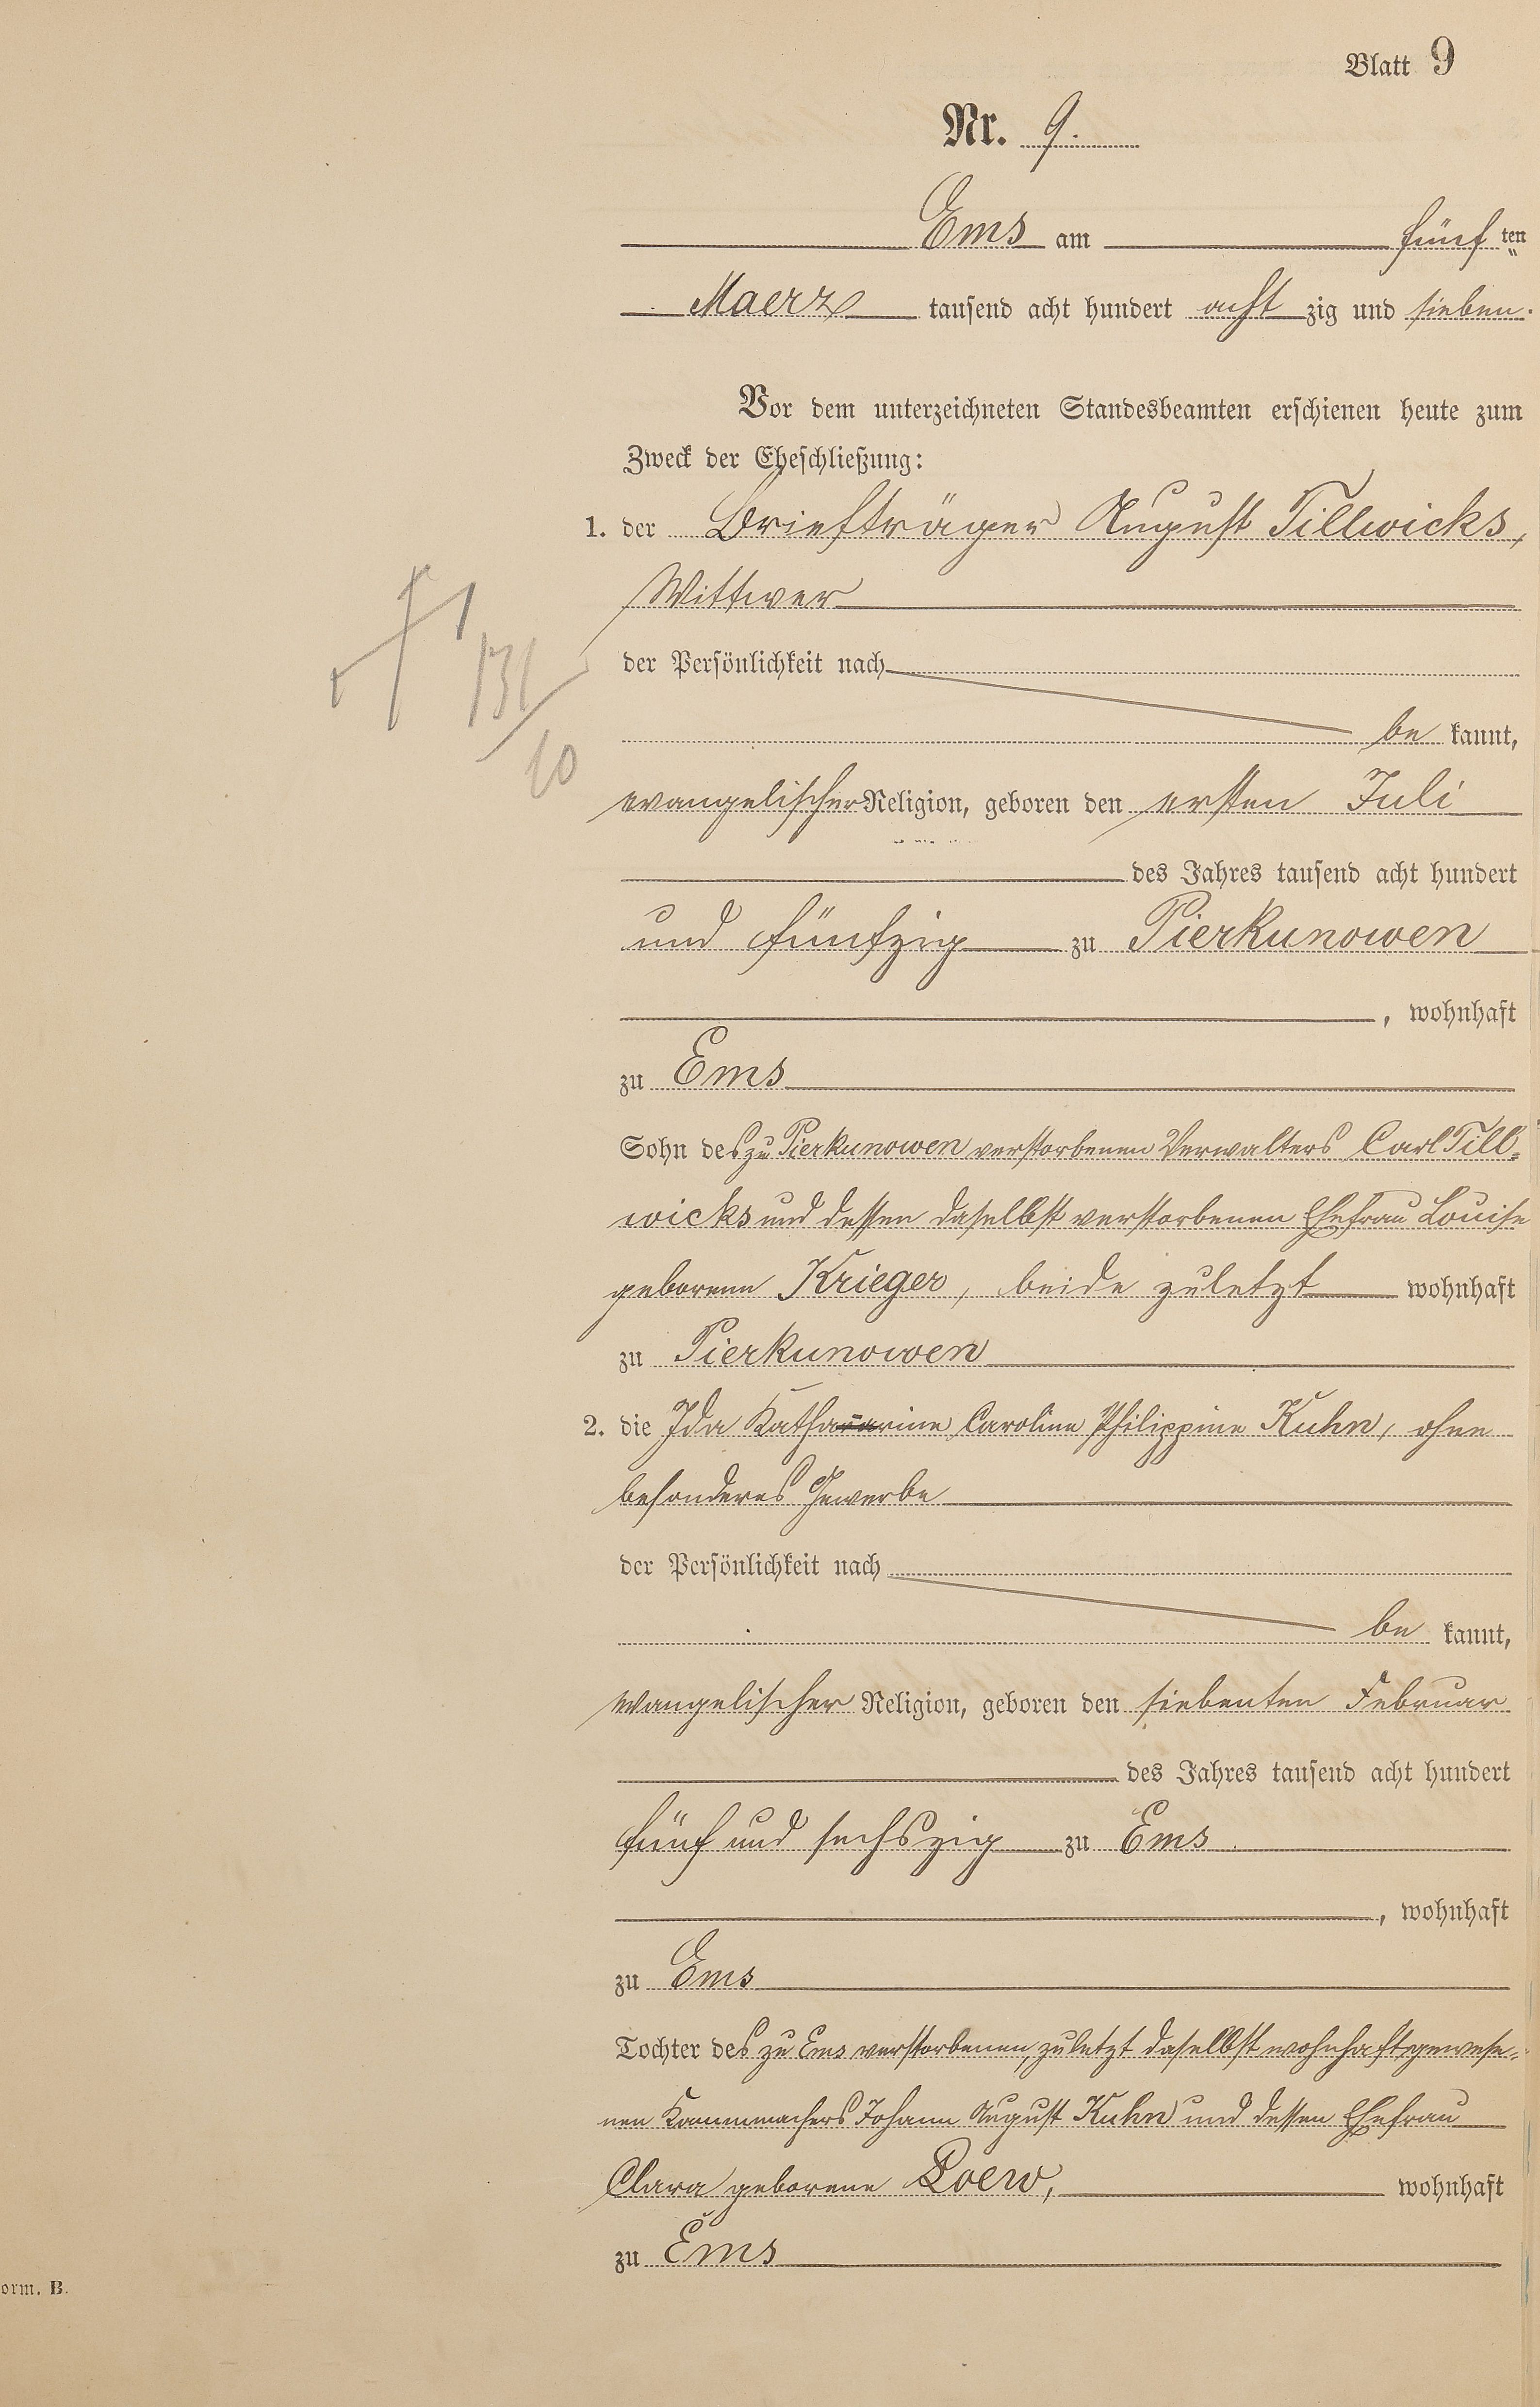 Blatt 9
Nr. 9.
Ems am fünften
Maerz tausend acht hundert achtzig und sieben.
Vor dem unterzeichneten Standesbeamten erschienen heute zum
Zweck der Eheschließung:
1. der Briefträger August Tillwicks,
Wittwer
der Persönlichkeit nach
be kannt,
evangelischer Religion, geboren den ersten Juli
des Jahres tausend acht hundert
und fünfzig zu Pierkunowen
, wohnhaft
zu Ems
Sohn des zu Pierkunowen verstorbenen Verwalters Carl Till-
wicks und dessen daselbst verstorbenen Ehefrau Louise
geborene Krieger, beide zuletzt wohnhaft
zu Pierkunowen
2. die Ida Katharina Caroline Philippine Kuhn, ohne
besonderes Gewerbe
der Persönlichkeit nach
be kannt,
evangelischer Religion, geboren den siebenten Februar
des Jahres tausend acht hundert
fünf und sechszig zu Ems
, wohnhaft
zu Ems
Tochter des zu Ems verstorbenen, zuletzt daselbst wohnhaft gewese-
nen Kammmachers Johann August Kuhn und dessen Ehefrau
Clara geborene Loew, wohnhaft
zu Ems
orm. B.